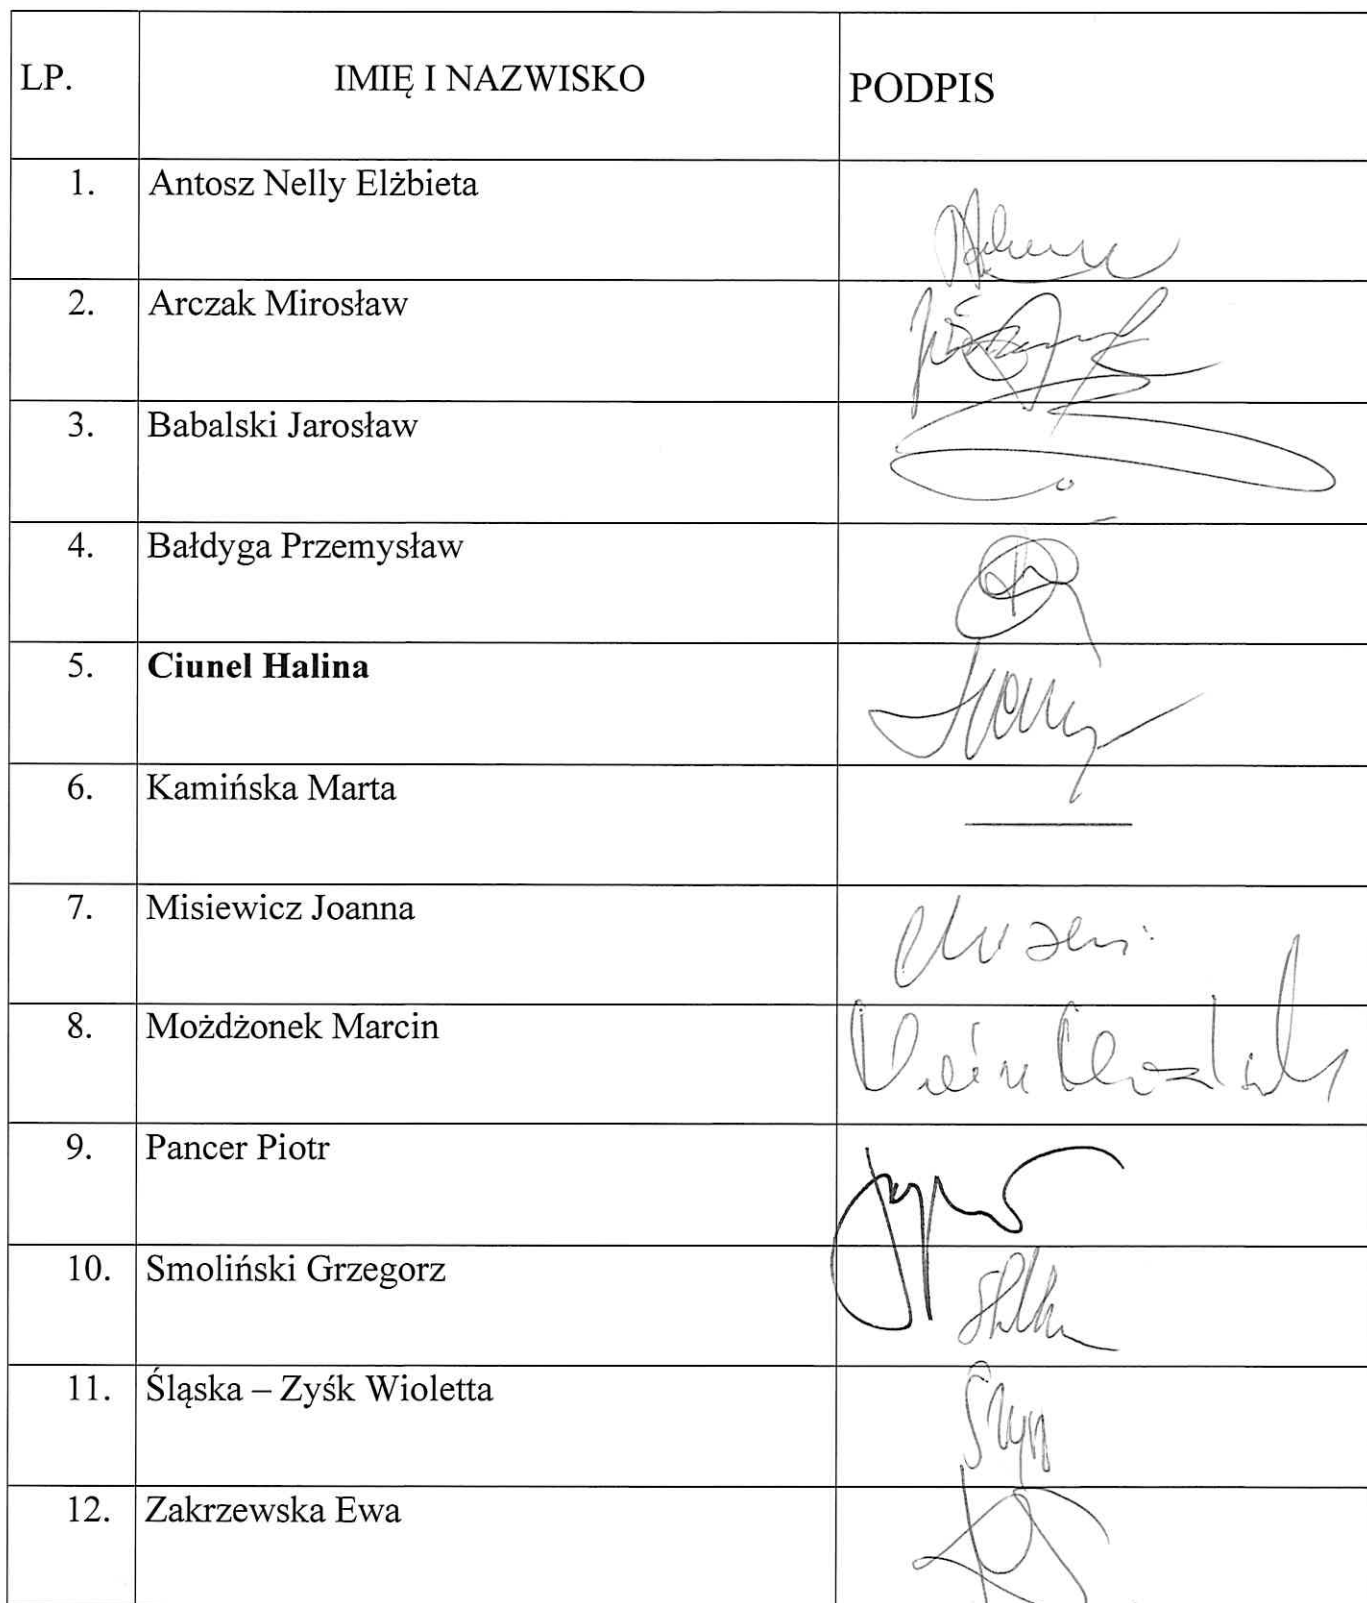 LP. IMIĘ I NAZWISKO PODPIS
1. Antosz Nelly Elżbieta
2. Arczak Mirosław
3. Babalski Jarosław
4. Bałdyga Przemysław
5. Ciunel Halina
6. Kamińska Marta
7. Misiewicz Joanna
8. Możdżonek Marcin
9. Pancer Piotr
10. Smoliński Grzegorz
11. Śląska – Zyśk Wioletta
12. Zakrzewska Ewa